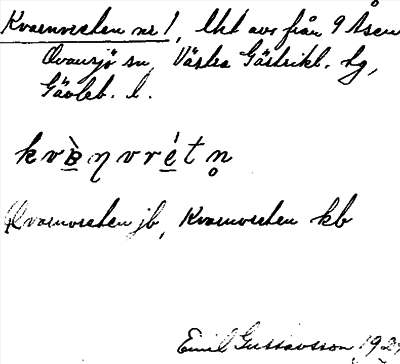 Kvarnvreten nr 1, lht avs från 9 Åsen
Ovansjö sn, Västra Gästrikl. hg,
Gävleb. l.
Qvarnvreten jb, Kvarnvreten kb
Emil Gustavsson